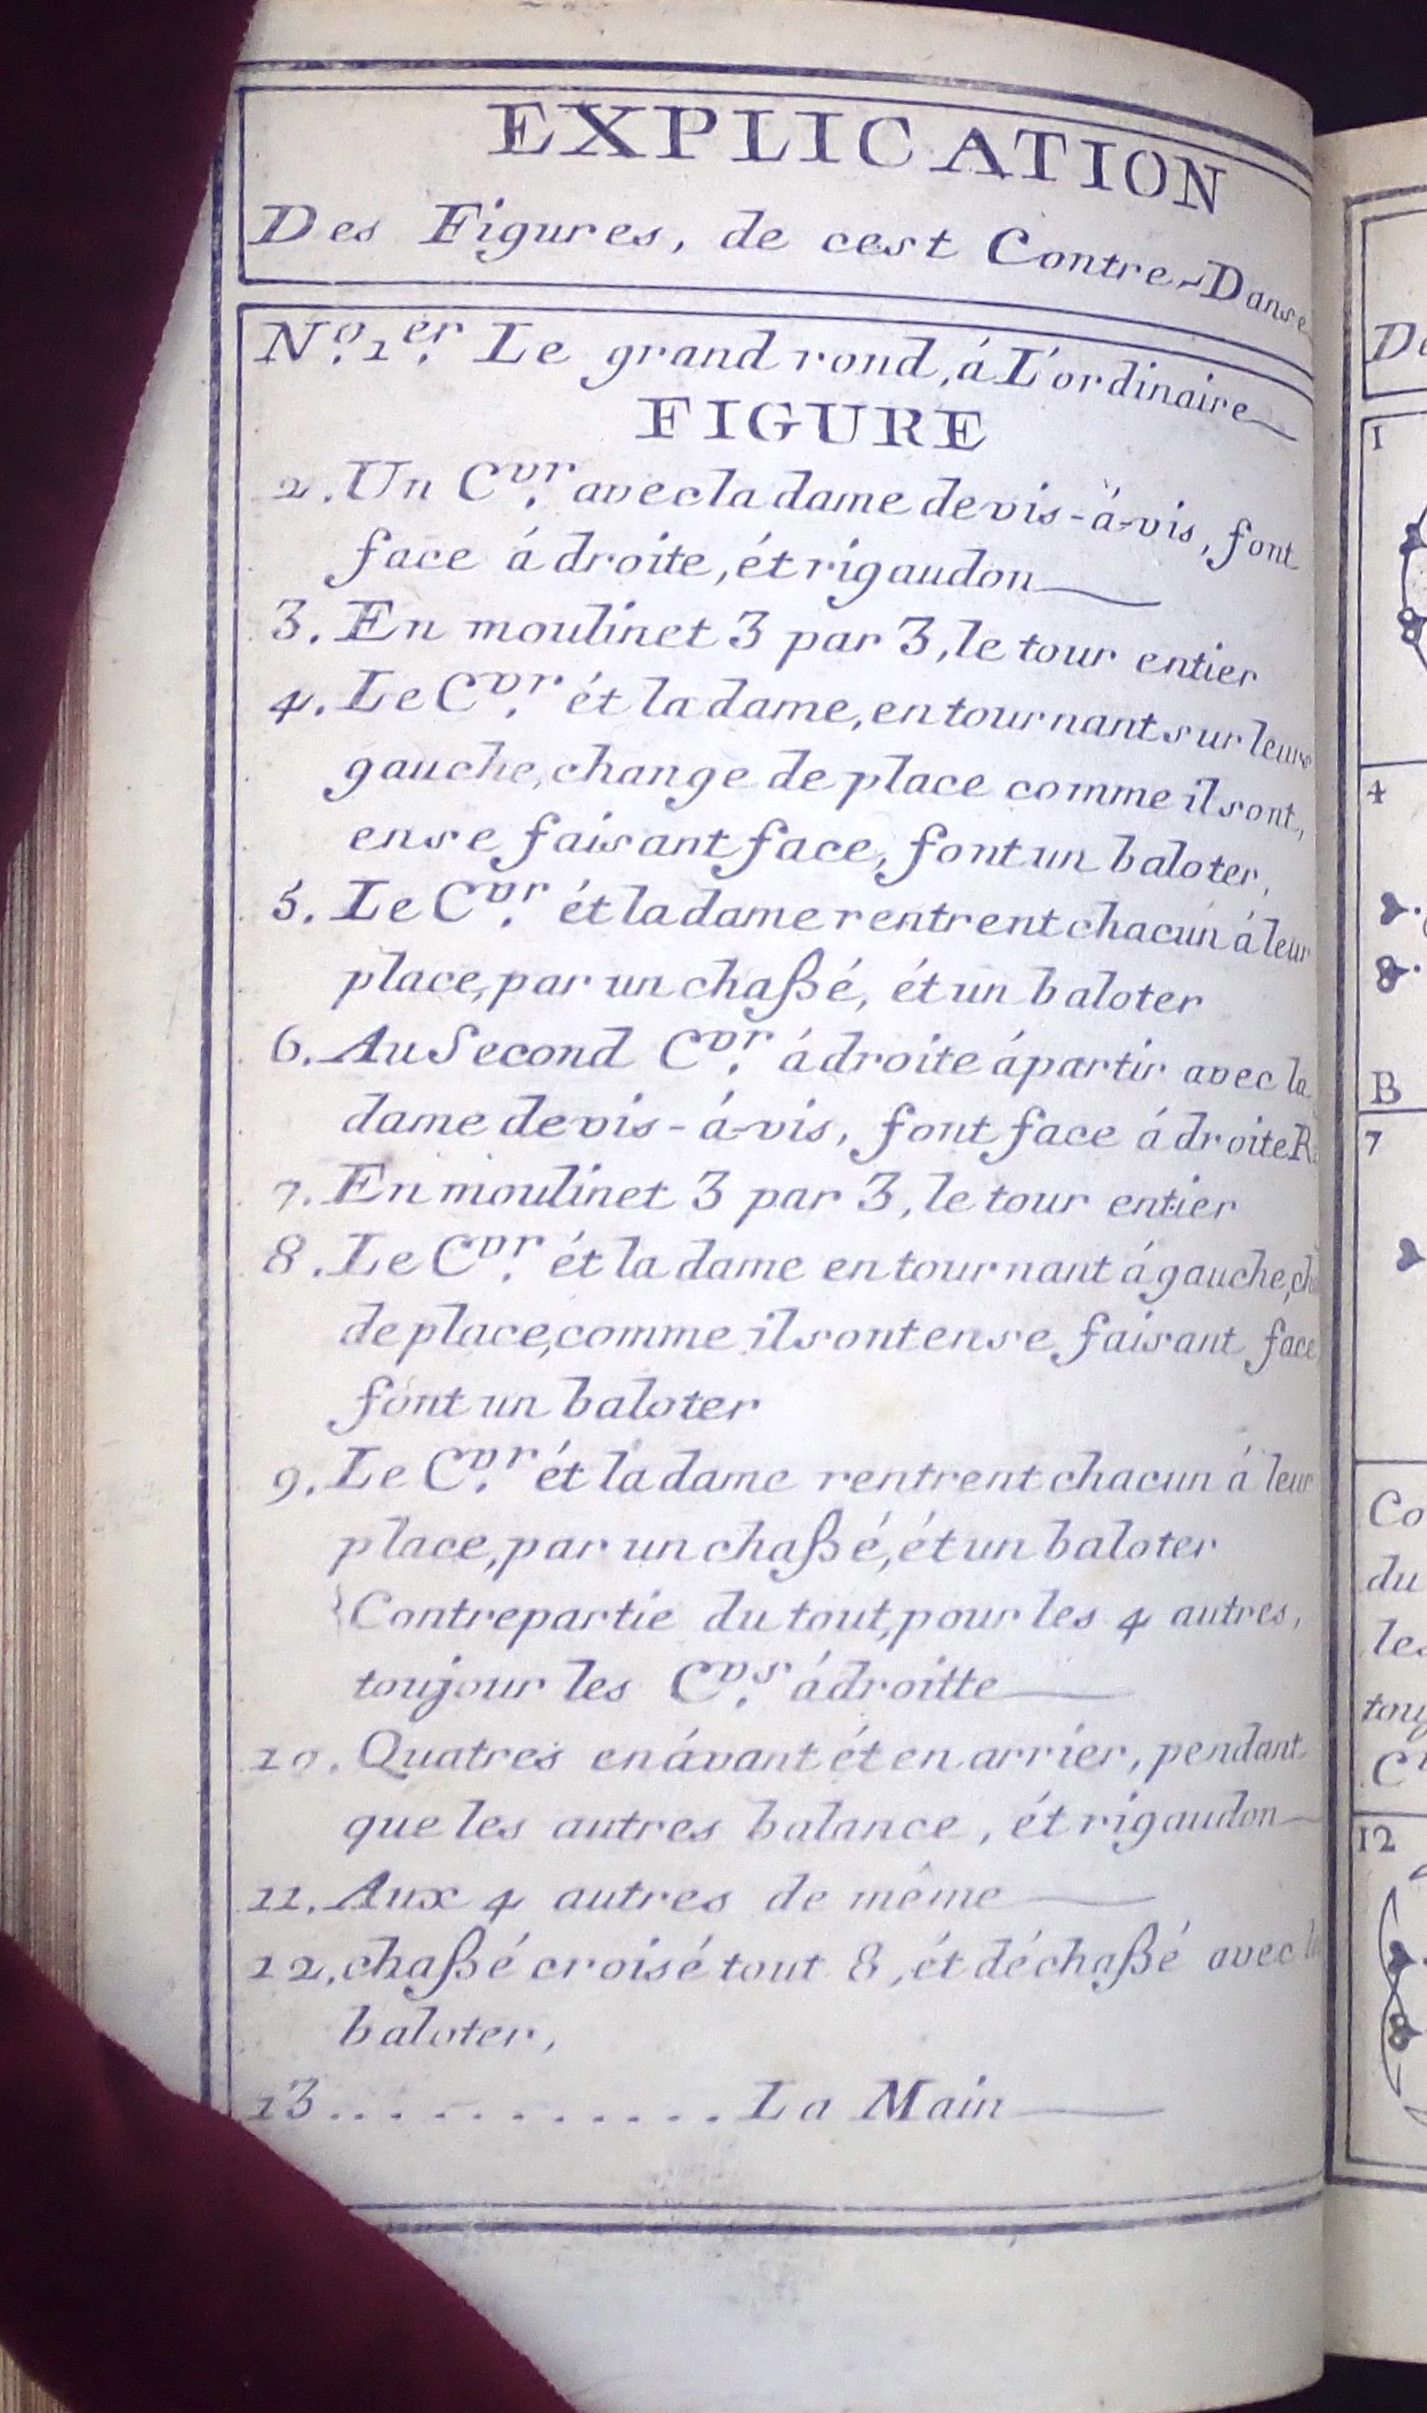 EXPLICATION
Des Figures, de cest Contre-Danse
No. 1er. Le grand rond, á L'ordinaire
FIGURE
2. Un Cvr. avec la dame de vis-à-vis, font
face á droite, ét rigaudon
3. En moulinet 3 par 3, le tour entier
4. Le Cvr. ét la dame, en tournant sur leurs
gauche, change de place comme il sont,
en se faisant face, font un baloter,
5. Le Cvr. ét la dame rentrent chacun á leur
place, par un chaßé, ét un baloter
6. Au Second Cvr. á droite á partir avec la
dame de vis-á-vis, font face á droite R
7. En moulinet 3 par 3, le tour entier
8. Le Cvr. ét la dame en tournant á gauche,
de place, comme il sont en se faisant face
font un baloter
9. Le Cvr. ét la dame rentrent chacun á leur
place, par un chaßé, ét un baloter
Contrepartie du tout, pour les 4 autres,
toujour les Cvs. á droitte
10. Quatres en ávant ét en arrier, pendant
que les autres balance, ét rigaudon
11. Aux 4 autres de même
12, chaßé croisé tout 8, ét déchaßé avec
baloter,
13............ La Main
1
4
B
7
Co
du
les
12